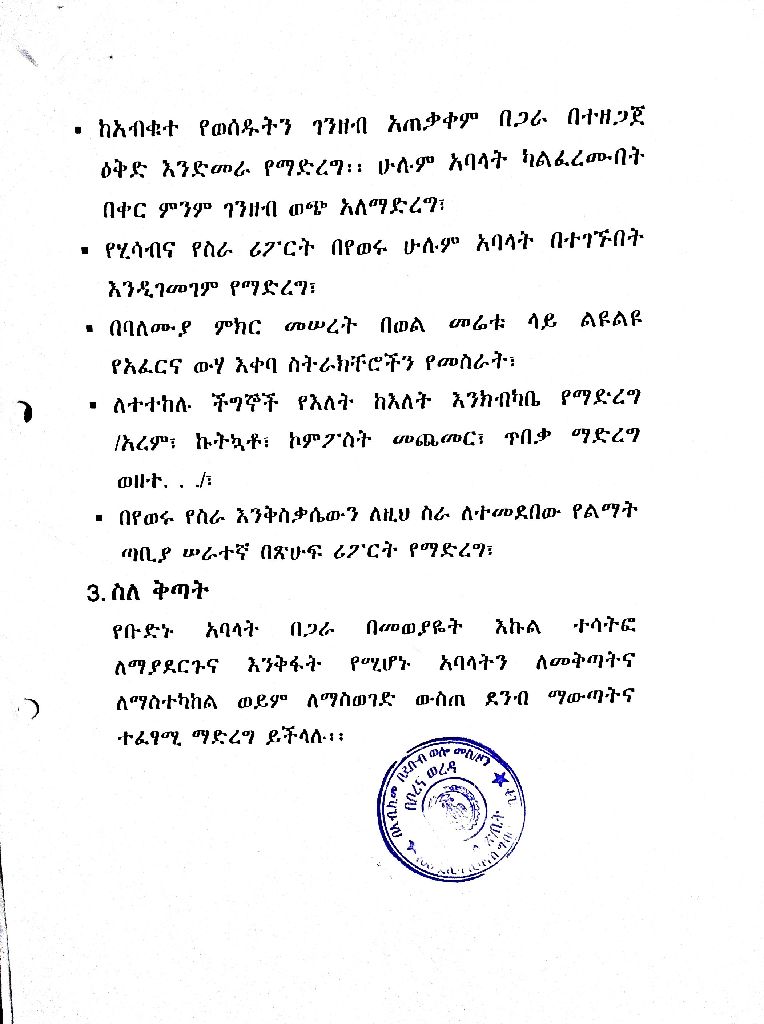 ▪ ከአብቁተ የወሰዱትን ገንዘብ አጠቃቀም በጋራ በተዘጋጀ
ዕቅድ እንድመራ የማድረግ፡፡ ሁሉም አባላት ካልፈረሙበት
በቀር ምንም ገንዘብ ወጭ አለማድረግ፣
▪ የሂሳብና የስራ ሪፖርት በየወሩ ሁሉም አባላት በተገኙበት
እንዲገመገም የማድረግ፣
▪ በባለሙያ ምክር መሠረት በወል መሬቱ ላይ ልዩልዩ
የአፈርና ውሃ እቀባ ስትራክቸሮችን የመስራት፣
▪ ለተተከሉ ችግኞች የእለት ከእለት እንክብካቤ የማድረግ
/አረም፣ ኩትኳቶ፣ ኮምፖስት መጨመር፣ ጥበቃ ማድረግ
ወዘተ. . ./፣
▪ በየወሩ የስራ እንቅስቃሴውን ለዚህ ስራ ለተመደበው የልማት
ጣቢያ ሠራተኛ በጽሁፍ ሪፖርት የማድረግ፣
3. ስለ ቅጣት
የቡድኑ አባላት በጋራ በመወያዬት እኩል ተሳትፎ
ለማያደርጉና እንቅፋት የሚሆኑ አባላትን ለመቅጣትና
ለማስተካከል ወይም ለማስወገድ ውስጠ ደንብ ማውጣትና
ተፈፃሚ ማድረግ ይችላሉ፡፡
በደቡብ ወሎ መስ/ዞን
በቦረና ወረዳ